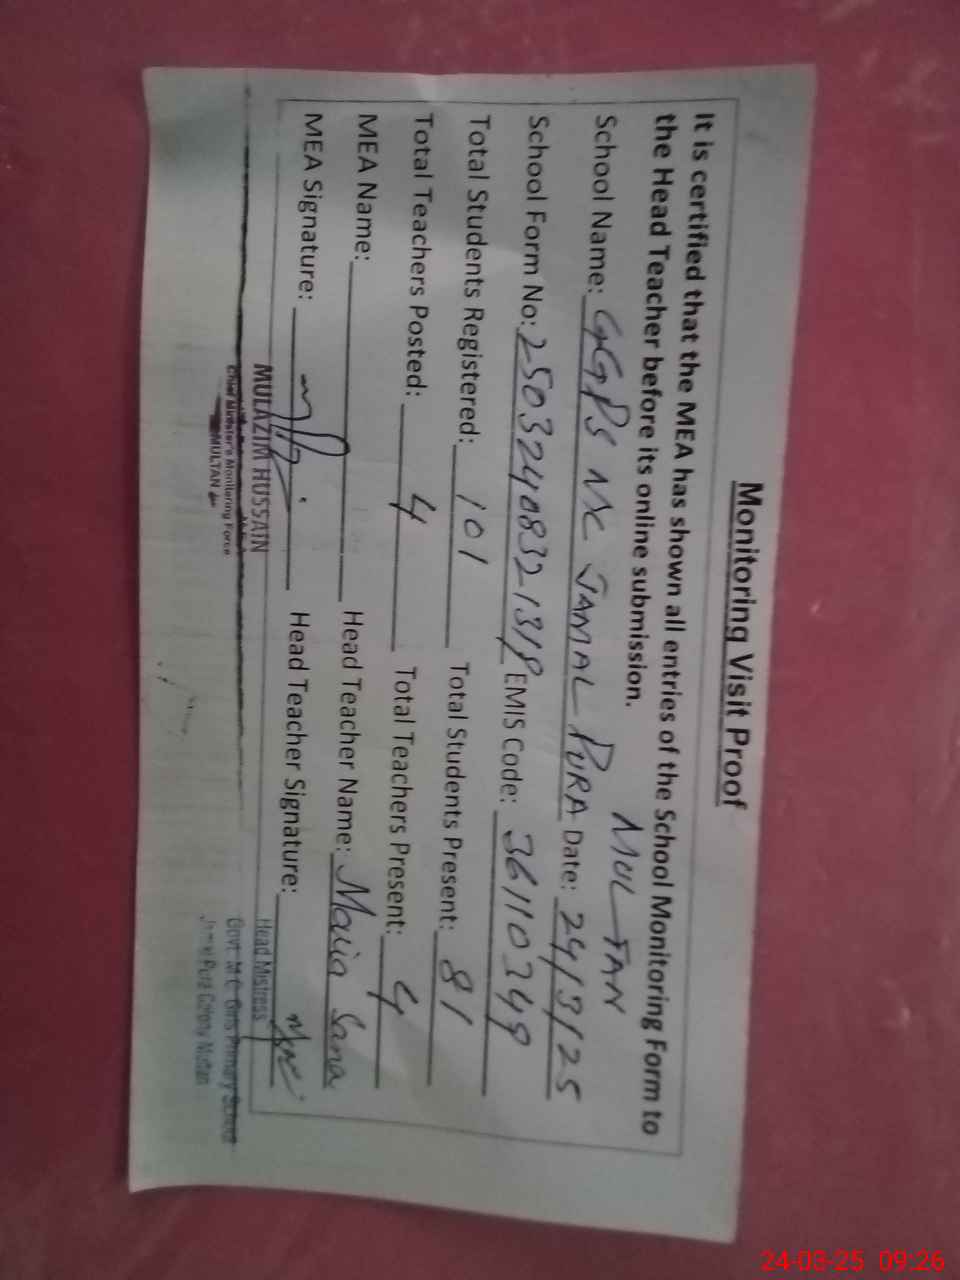 Monitoring Visit Proof
It is certified that the MEA has shown all entries of the School Monitoring Form to
the Head Teacher before its online submission.
MULTAN
School Name: GGPS MC JAMAL PURA Date: 24/3/25
School Form No: 250324083213 EMIS Code: 36110349
Total Students Registered: 101 Total Students Present: 81
Total Teachers Posted: 4 Total Teachers Present: 4
MEA Name: Head Teacher Name: Maria Sana
MEA Signature: Head Teacher Signature:
MULAZIM HUSSAIN
Chief Minister's Monitoring Force
MULTAN
Head Mistress
Govt. M.C. Girls Primary School
Jamal Pura Colony Multan
24-03-25 09:26